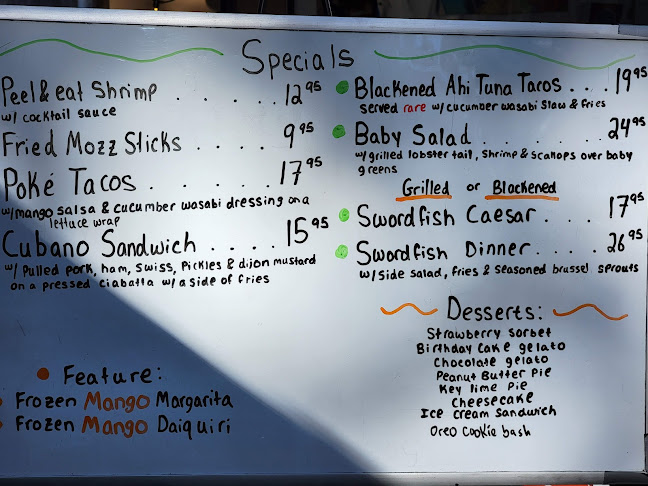 Specials
Peel & eat Shrimp . . . . . . 12 95
w/ cocktail sauce
Fried Mozz Sticks . . . . 9 95
Poké Tacos . . . . . . 17 95
w/ mango salsa & cucumber wasabi dressing on a
lettuce wrap
Cubano Sandwich . . . . 15 95
w/ Pulled pork, ham, Swiss, Pickles & dijon mustard
on a pressed ciabatta w/ a side of fries
Feature:
Frozen Mango Margarita
Frozen Mango Daiquiri
Blackened Ahi Tuna Tacos . . . 19 95
Served rare w/ cucumber wasabi Slaw & fries
Baby Salad . . . . . . 24 95
w/ grilled lobster tail, Shrimp & Scallops over baby
greens
Grilled or Blackened
Swordfish Caesar . . . . 17 95
Swordfish Dinner . . . . . 26 95
w/ Side salad, fries & seasoned brussel sprouts
Desserts:
Strawberry Sorbet
Birthday Cake gelato
Chocolate gelato
Peanut Butter Pie
Key lime Pie
Cheesecake
Ice cream Sandwich
Oreo Cookie bash